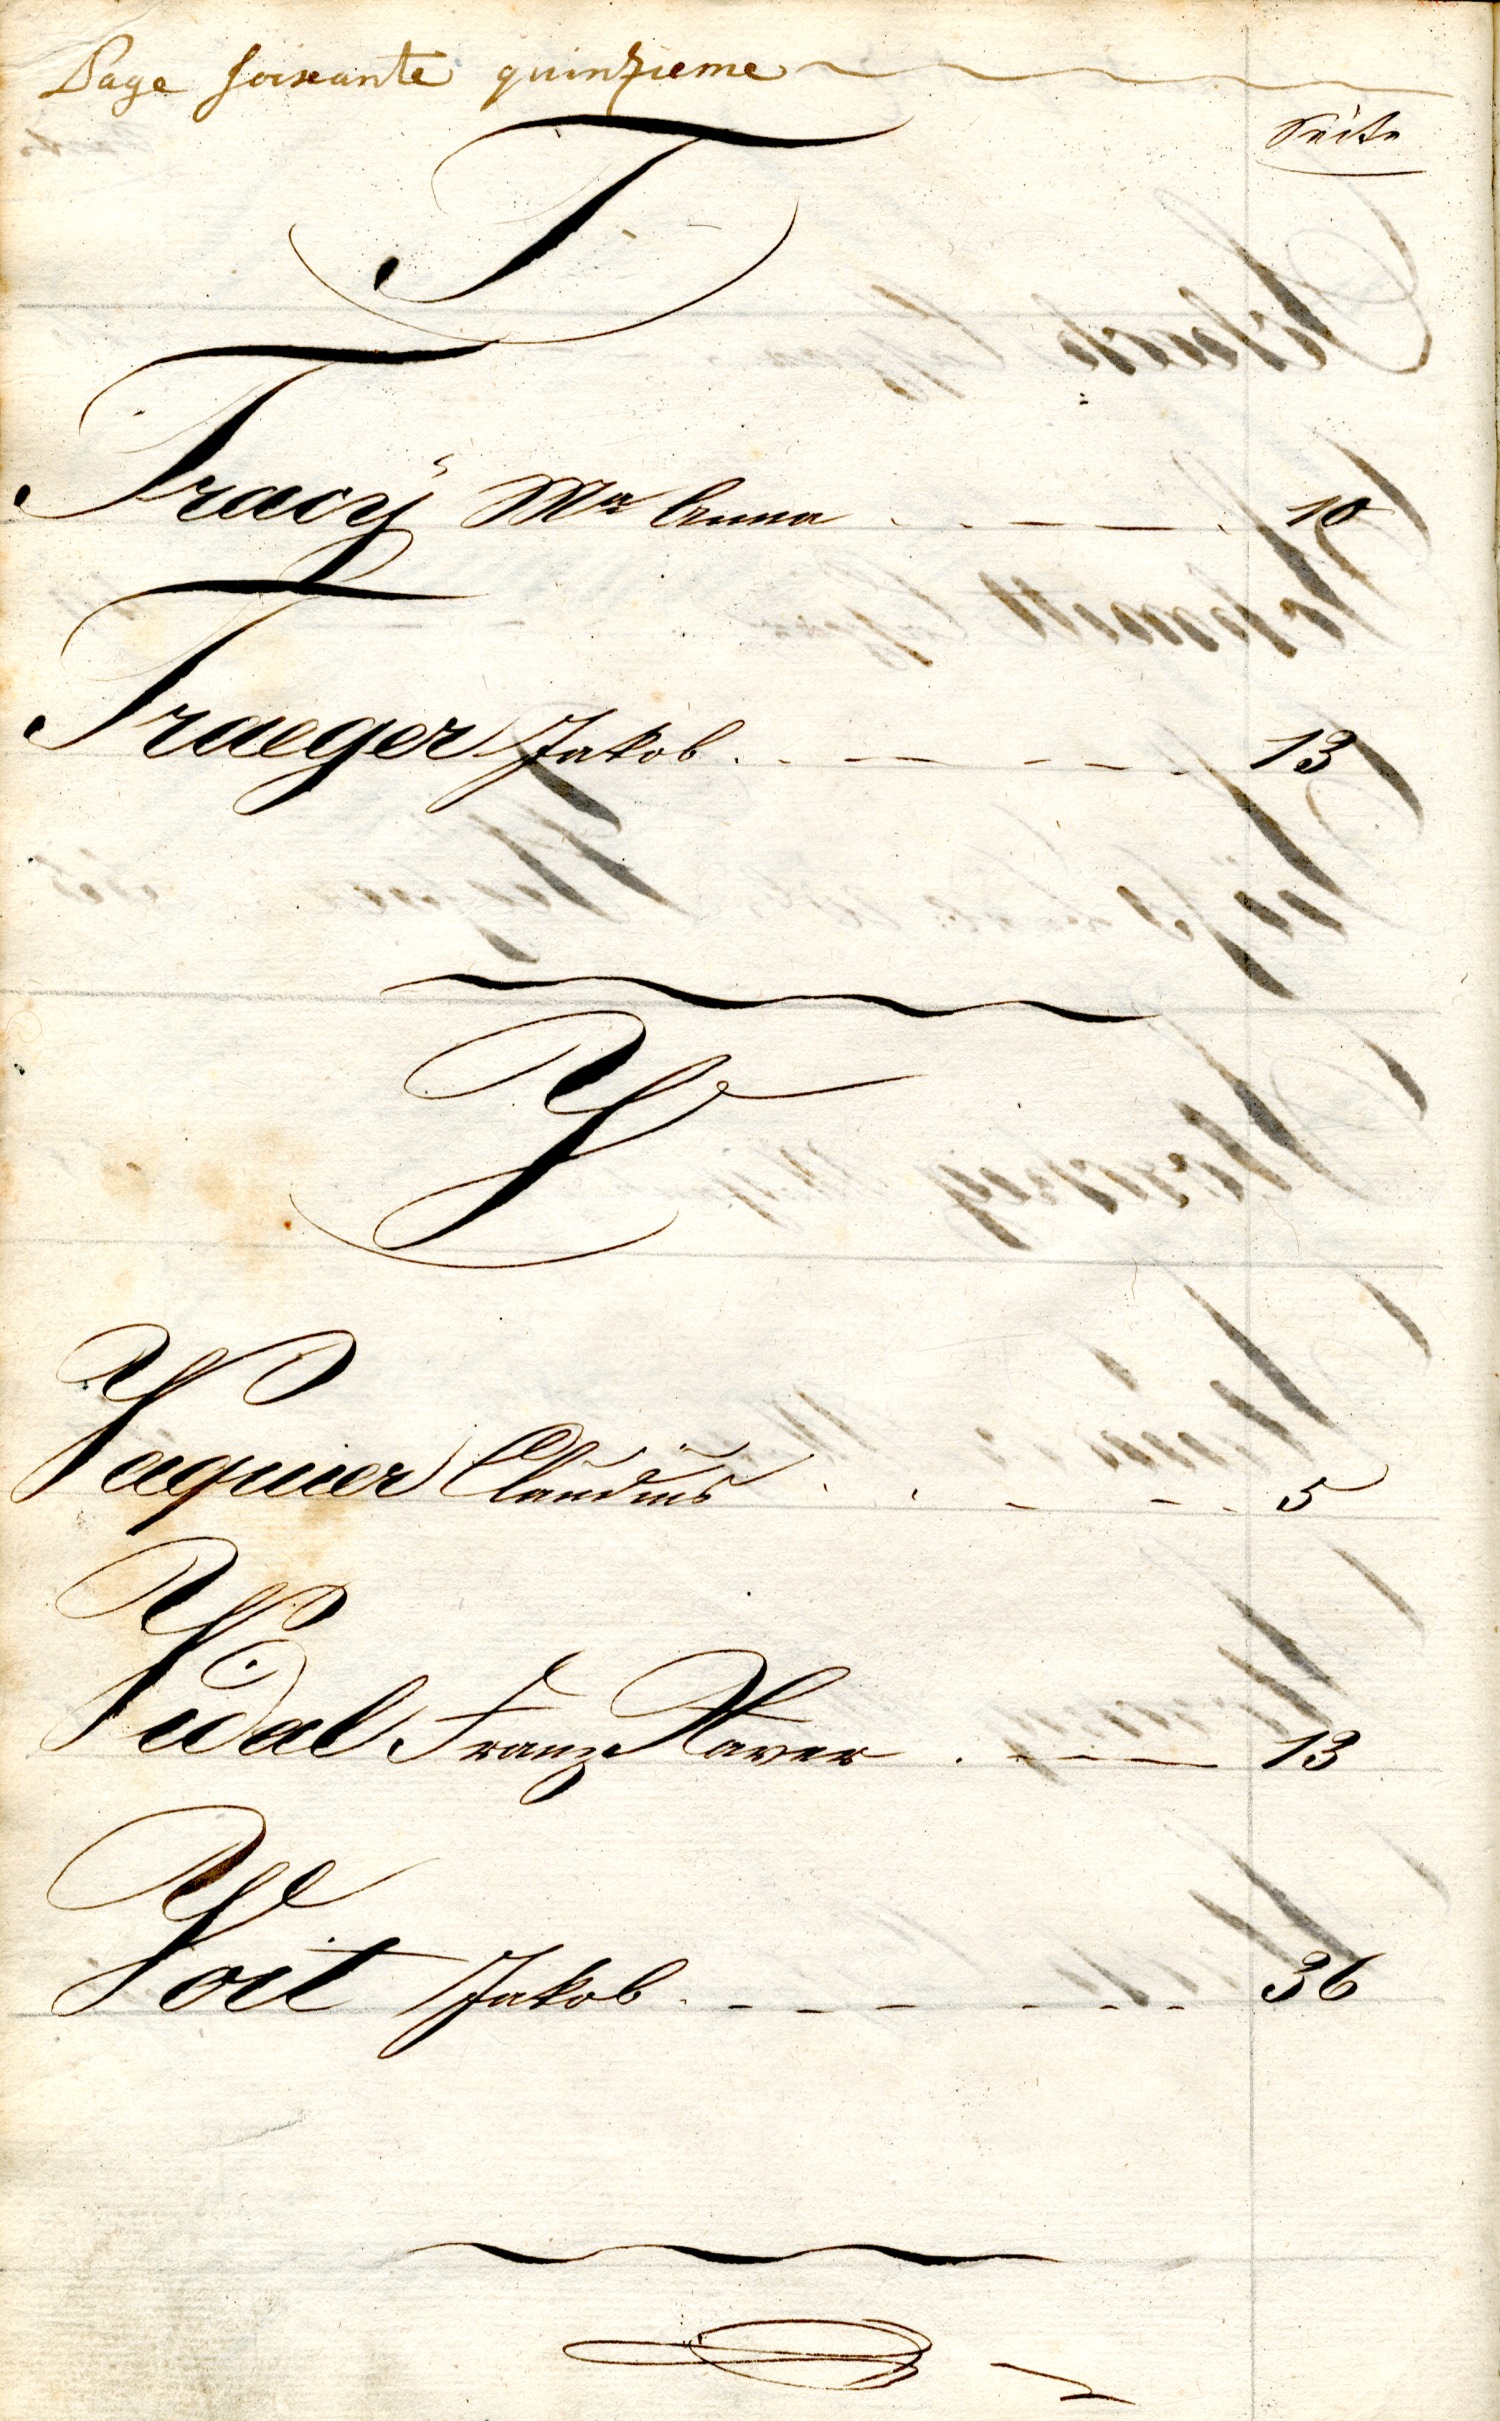 Page soixante quinzieme
Seite
T
Tracÿ Ma Anna 10
Traeger Jakob 13
V
Vaquier Claudius 5
Vidal Franz Xaver 13
Voit Jakob 36